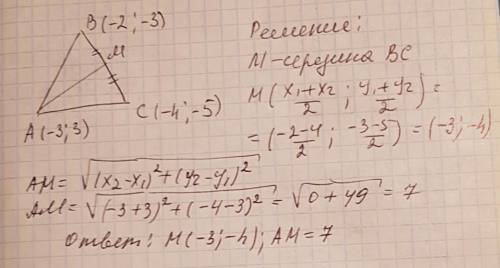 B(-2;-3)
M
C(-4;-5)
A(-3;3)
Решение:
M-середина BC
M(x₁+x₂/2; y₁+y₂/2)=
=(-2-4/2; -3-5/2)=(-3;-4)
AM=√(x₂-x₁)²+(y₂-y₁)²
AM=√(-3+3)²+(-4-3)²=√0+49=7
Ответ: M(-3;-4); AM=7